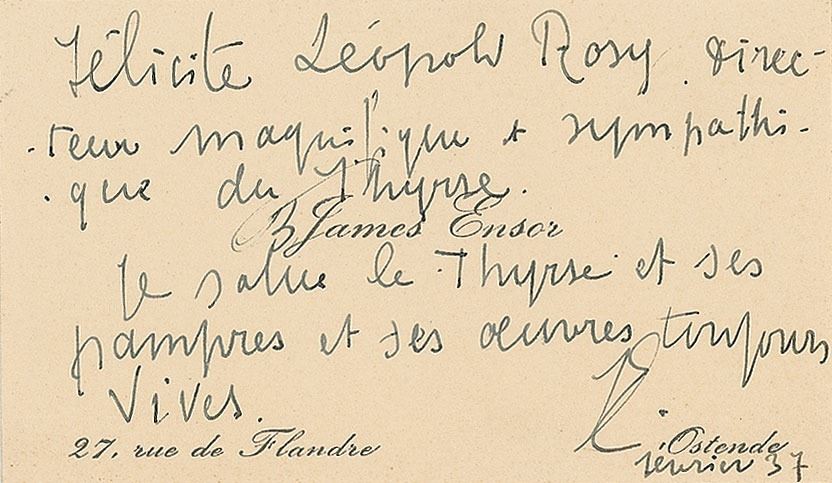 Félicite Léopold Rosy. Direc-
-teur magnifique & sympathi-
-que du Thyrse.
Bn James Ensor
Je salue le Thyrse et ses
pampres et ses œuvres toujours
Vives.
27, rue de Flandre
Ostende
février 37